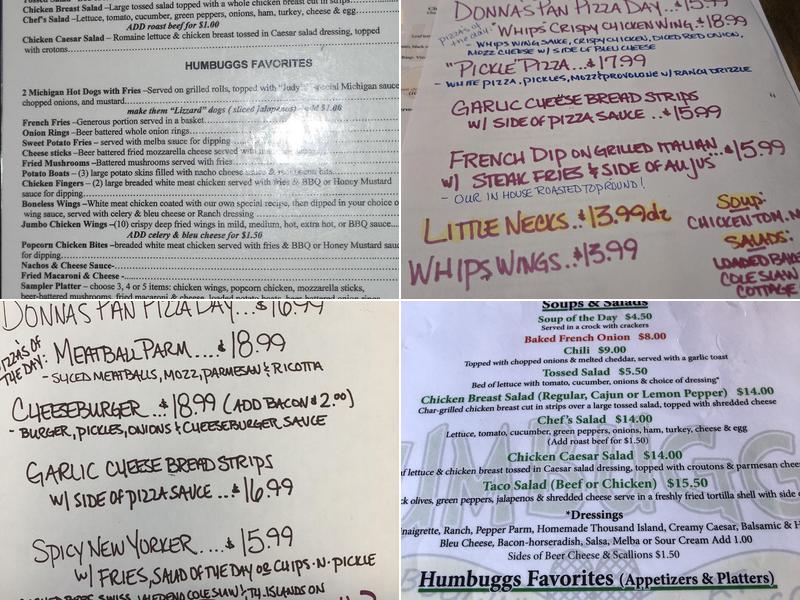 Chicken Breast Salad –Large tossed salad topped with a whole chicken breast cut in strips
Chef's Salad –Lettuce, tomato, cucumber, green peppers, onions, ham, turkey, cheese & egg
ADD roast beef for $1.00
Chicken Caesar Salad – Romaine lettuce & chicken breast tossed in Caesar salad dressing, topped
with crotons
HUMBUGGS FAVORITES
2 Michigan Hot Dogs with Fries –Served on grilled rolls, topped with "Judy" special Michigan sauce
chopped onions, and mustard
make them "Lizzard" dogs ( sliced jalapenos) add $1.00
French Fries –Generous portion served in a basket
Onion Rings –Beer battered whole onion rings
Sweet Potato Fries – served with melba sauce for dipping
Cheese sticks –Beer battered fried mozzarella cheese served with
Fried Mushrooms –Battered mushrooms served with fries
Potato Boats – (3) large potato skins filled with nacho cheese
Chicken Fingers – (2) large breaded white meat chicken served with fries & BBQ or Honey Mustard
sauce for dipping
Boneless Wings –White meat chicken coated with our own special recipe, then dipped in your choice o
wing sauce, served with celery & bleu cheese or Ranch dressing
Jumbo Chicken Wings –(10) crispy deep fried wings in mild, medium, hot, extra hot, or BBQ sauce...
ADD celery & bleu cheese for $1.50
Popcorn Chicken Bites –breaded white meat chicken served with fries & BBQ or Honey Mustard sau
for dipping
Nachos & Cheese Sauce-
Fried Macaroni & Cheese -
Sampler Platter – choose 3, 4 or 5 items: chicken wings, popcorn chicken, mozzarella sticks,
beer-battered mushrooms, fried macaroni & cheese, loaded potato boats, beer battered onion rings
DONNAS PAN PIZZA DAY...$15.99
PIZZA'S OF the day:
"WHIPS" CRISPY CHICKEN WING..$18.99
- WHIPS WING SAUCE, CRISPY CHICKEN, DICED RED ONION,
MOZZ CHEESE W/ SIDE OF BLEU CHEESE
"PICKLE" PIZZA...$17.99
- WHITE PIZZA, PICKLES, MOZZ & PROVOLONE W/ RANCH DRIZZLE
GARLIC CHEESE BREAD STRIPS
W/ SIDE OF PIZZA SAUCE ..$15.99
FRENCH DIP ON GRILLED ITALIAN...$15.99
W/ STEAK FRIES & SIDE OF AUJUS
- OUR IN HOUSE ROASTED TOP ROUND!
LITTLE NECKS..$13.99dz
WHIPS WINGS...$13.99
SOUP:
CHICKEN TOM. N
SALADS:
LOADED BAKE
COLE SLAW
COTTAGE
DONNAS PAN PIZZA DAY...$16.99
THE DAY:
MEATBALL PARM....$18.99
- SLICED MEATBALLS, MOZZ, PARMESAN & RICOTTA
CHEESEBURGER...$18.99 (ADD BACON $2.00)
- BURGER, PICKLES, ONIONS & CHEESEBURGER SAUCE
GARLIC CHEESE BREAD STRIPS
W/ SIDE OF PIZZA SAUCE ...$16.99
SPICY NEW YORKER....$15.99
W/ FRIES, SALAD OF THE DAY OR CHIPS-N-PICKLE
SWISS, JALEPENO COLESLAW & TH. ISLANDS ON
Soups & Salads
Soup of the Day $4.50
Served in a crock with crackers
Baked French Onion $8.00
Chili $9.00
Topped with chopped onions & melted cheddar, served with a garlic toast
Tossed Salad $5.50
Bed of lettuce with tomato, cucumber, onions & choice of dressing*
Chicken Breast Salad (Regular, Cajun or Lemon Pepper) $14.00
Char-grilled chicken breast cut in strips over a large tossed salad, topped with shredded cheese
Chef's Salad $14.00
Lettuce, tomato, cucumber, green peppers, onions, ham, turkey, cheese & egg
(Add roast beef for $1.50)
Chicken Caesar Salad $14.00
of lettuce & chicken breast tossed in Caesar salad dressing, topped with croutons & parmesan chees
Taco Salad (Beef or Chicken) $15.50
ck olives, green peppers, jalapenos & shredded cheese serve in a freshly fried tortilla shell with side o
*Dressings
naigrette, Ranch, Pepper Parm, Homemade Thousand Island, Creamy Caesar, Balsamic & H
Bleu Cheese, Bacon-horseradish, Salsa, Melba or Sour Cream Add 1.00
Sides of Beer Cheese & Scallions $1.50
Humbuggs Favorites (Appetizers & Platters)